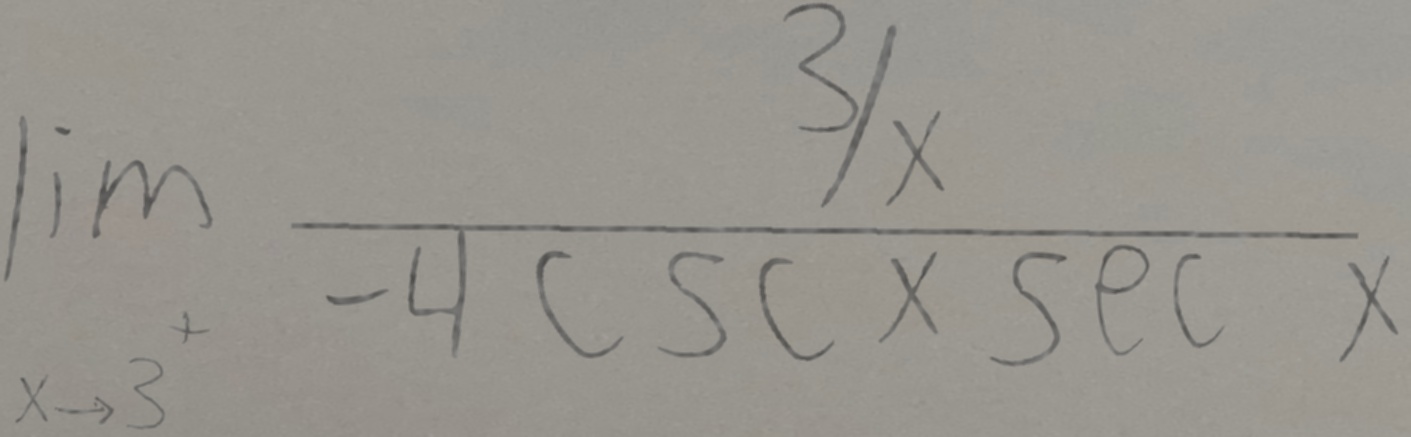 lim x→3⁺ (3/x)/(-4 csc x sec x)